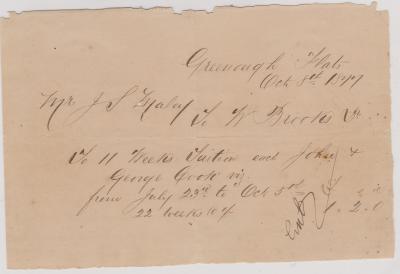 Greenough Flats
Oct 8th 1877
Mr J S Maley
To W Brooks Dr
To 11 Weeks Tuition each John &
George Cook viz.
from July 23rd to Oct 5th
22 weeks @ 1/ 1. 2. 0